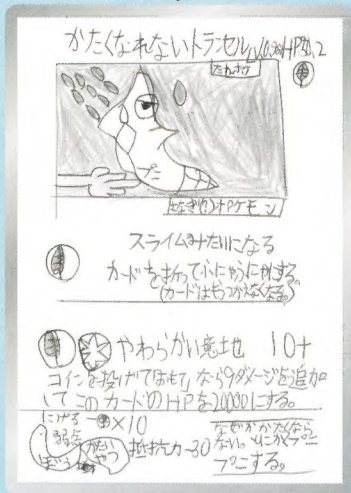 かたくなれないトランセル
HP
た
ポケモン
スライムみたいになる
カードを折ってふにゃふにゃにする。
(カードはもうつかえなくなる。)
やわらかい意地 10+
コインを投げて「おもて」なら9ダメージを追加
してこのカードのHPを20000にする。
にげる
弱点
×10
かたい
やつ
抵抗力-30
なぜかかたくなら
ない。
プニする。